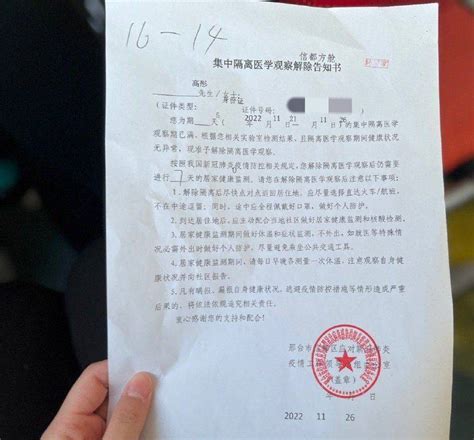 16-14
信都方舱
集中隔离医学观察解除告知书
高彤
先生/女士:
身份证
(证件类型: 证件号码:
您为期 5 天( 2022 年 11 月 21 日— 11 月 26 日)的集中隔离医学
观察期已满,根据您相关实验室检测结果,且隔离医学观察期间健康状况
无异常,现准予解除隔离医学观察。
按照我国新冠肺炎疫情防控相关规定,您解除隔离医学观察后仍需要
进行 天的居家健康监测。请您在解除隔离医学观察后注意以下事项:
1.解除隔离后尽快点对点返回居住地,应尽量选择直达火车/航班,
不在中途逗留。同时,途中应全程佩戴好口罩,做好个人防护。
2.到达居住地后,应主动配合当地社区做好居家健康监测和核酸检测。
3.居家健康监测期间做好体温和症状监测,不外出,如就医等特殊情
况必需外出时做好个人防护,尽量避免乘坐公共交通工具。
4.居家健康监测期间,请每日早晚各测量一次体温,注意观察自身健
康状况并向社区报告。
5.凡有瞒报、漏报自身健康状况,逃避疫情防控措施等情形造成严重
后果的,将依法依规追究相关责任。
衷心感谢您的支持和配合!
邢台市 区应对 炎
疫情 领 组 室
(盖章)
年 月 日
2022 11 26